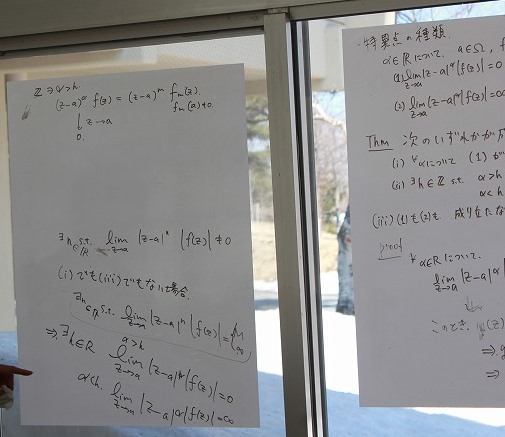 ℤ∋α>h.
(z-a)^α f(z) = (z-a)^m f_m(z).
f_m(a)≠0.
↓ z→a
0.
∃h∈ℝ s.t. lim_{z→a} |z-a|^h |f(z)| ≠ 0
(i)でも(iii)でもない場合.
∃h∈ℝ s.t. lim_{z→a} |z-a|^h |f(z)| =
⇒ ∃h∈ℝ α>h lim_{z→a} |z-a|^α |f(z)| = 0
α<h. lim_{z→a} |z-a|^α |f(z)| = ∞
・特異点の種類.
α∈ℝについて. a∈Ω, f
(1) lim_{z→a} |z-a|^α |f(z)| = 0
(2) lim_{z→a} |z-a|^α |f(z)| = ∞
Thm 次のいずれかが
(i) ∀αについて (1)が
(ii) ∃h∈ℤ s.t. α>h
α<h
(iii) (1)も(2)も 成り立たな
proof
∀α∈ℝについて.
lim_{z→a} |z-a|^α
このとき. (z)
⇒
⇒